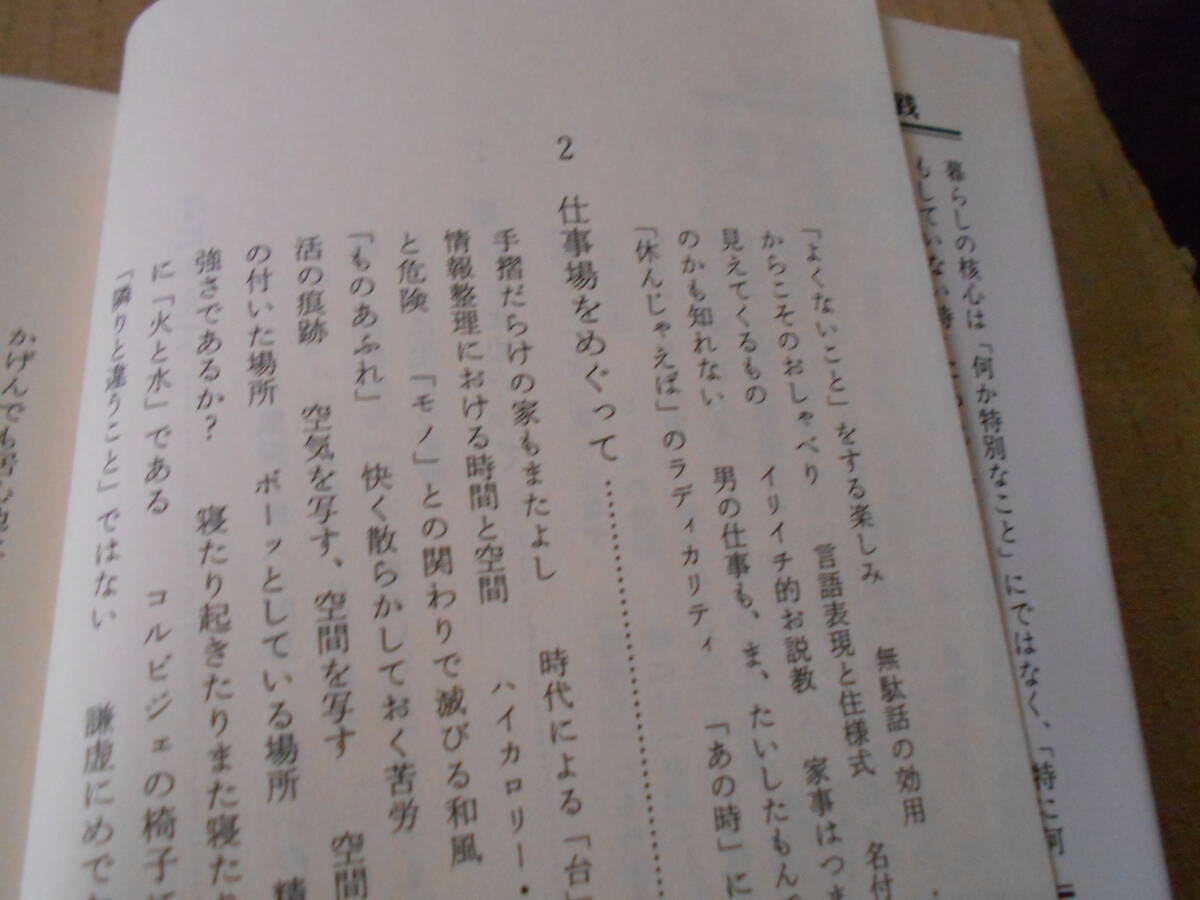 暮らしの核心は「何か特別なこと」にではなく、「特に何
もしていない時
「よくないこと」をする楽しみ　無駄話の効用　名付
からこそのおしゃべり　言語表現と住様式　家事はつま
見えてくるもの　イリイチ的お説教
のかも知れない　男の仕事も、ま、たいしたもんで
「休んじゃえば」のラディカリティ　「あの時」に
2　仕事場をめぐって……………………
手摺だらけの家もまたよし　時代による「台
情報整理における時間と空間　ハイカロリー・
と危険　「モノ」との関わりで滅びる和風
「ものあふれ」　快く散らかしておく苦労
活の痕跡　空気を写す、空間を写す　空間
の付いた場所　ボーッとしている場所　精
強さであるか?　寝たり起きたりまた寝たり
に「火と水」である　コルビジェの椅子に
「隣りと違うこと」ではない　謙虚にめでた
かげんでも居心地